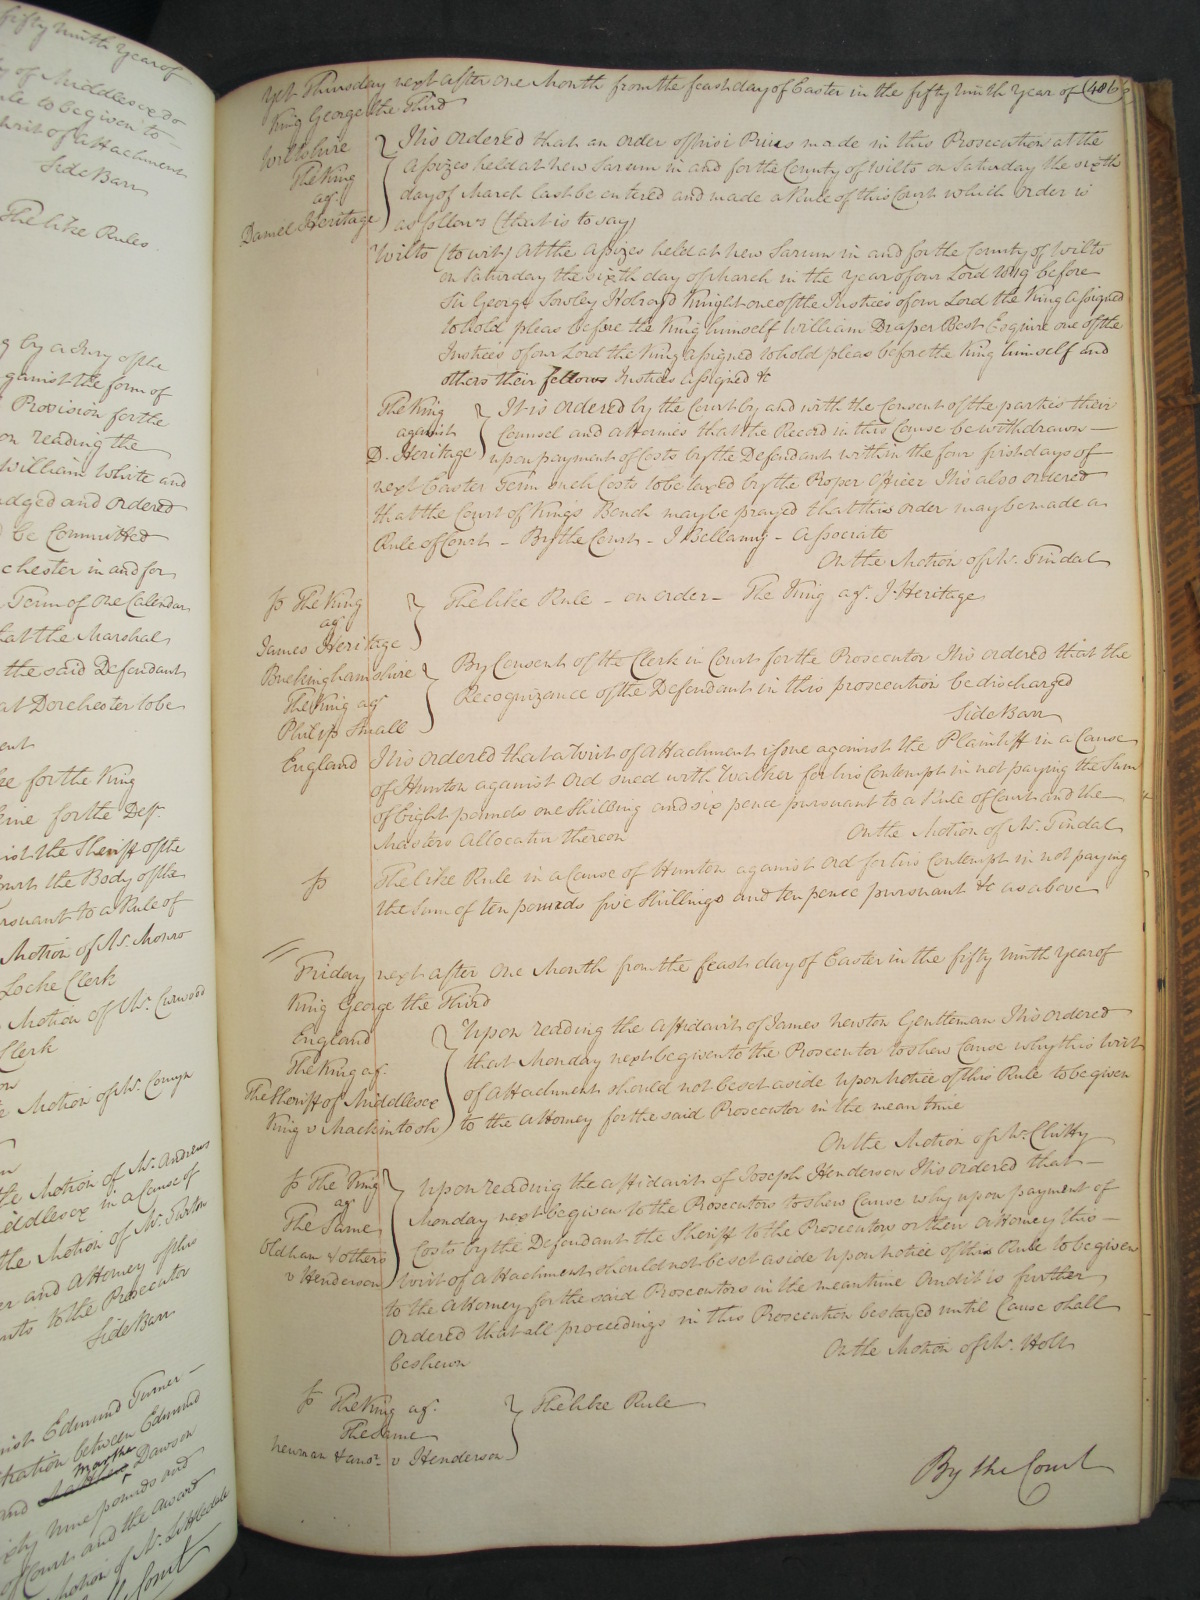 fifty ninth Year of
of Middlesex do
rule to be given to
writ of Attachment
Side Barr
The like Rules
by a Jury of the
against the form of
Provision for the
on reading the
William White and
adged and ordered
be Committed
chester in and for
Term of one Calendar
that the Marshal
the said Defendant
at Dorchester to be
ent
for the King
for the Def.t
the Sheriff of the
Court the Body of the
pursuant to a Rule of
Motion of Mr. Monro
Locke Clerk
Motion of Mr. Curwood
Clerk
Motion of Mr. Comyn
the Motion of Mr. Andrews
iddlesex in a Cause of
the Motion of Mr.
and Attorney of this
to the Prosecutor
Side Barr
Edmund Turner
between Edmund
and Martha Dawson
nine pounds and
of Court and the Award
Motion of Mr. Littledale
Court
Yet Thursday next after one Month from the feast day of Easter in the fifty ninth Year of (486)
King George the Third
Wiltshire
The King
agt.
Daniel Heritage
It is Ordered that an order of Nisi Prius made in this Prosecution at the
Assizes held at New Sarum in and for the County of Wilts on Saturday the sixth
day of March last be entered and made a Rule of this Court which Order is
as follows (that is to say)
Wilts (to wit) At the Assizes held at New Sarum in and for the County of Wilts
on Saturday the sixth day of March in the Year of our Lord 1819 before
Sir George Sowley Holroyd Knight one of the Justices of our Lord the King assigned
to hold pleas before the King himself William Draper Best Esquire one of the
Justices of our Lord the King assigned to hold pleas before the King himself and
others their fellows Justices assigned &c
The King
against
D. Heritage
It is ordered by the Court by and with the Consent of the parties their
Counsel and Attornies that the Record in this Cause be withdrawn
upon payment of Costs by the Defendant within the four first days of
next Easter Term such Costs to be taxed by the Proper Officer It is also ordered
that the Court of Kings Bench may be prayed that this order may be made a
Rule of Court - By the Court - J Bellamy - Associate
On the Motion of Mr. Tindal
So The King
agt.
James Heritage
The like Rule - on order - The King agt. J. Heritage
Buckinghamshire
The King agt
Philip Small
By Consent of the Clerk in Court for the Prosecutor It is ordered that the
Recognizance of the Defendant in this prosecution be discharged
Side Barr
England It is ordered that a Writ of Attachment issue against the Plaintiff in a Cause
of Hunton against Ord sued with Walker for his Contempt in not paying the Sum
of Eight pounds one Shilling and six pence pursuant to a Rule of Court and the
Masters Allocatur thereon
On the Motion of Mr. Tindal
So The like Rule in a Cause of Hunton against Ord for his Contempt in not paying
the Sum of ten pounds five Shillings and ten pence pursuant &c as above
Friday next after One Month from the feast day of Easter in the fifty ninth Year of
King George the Third
England
The King agt.
The Sheriff of Middlesex
King v Mackintosh
Upon reading the Affidavit of James Newton Gentleman It is Ordered
that Monday next be given to the Prosecutor to shew Cause why this Writ
of Attachment should not be set aside Upon notice of this Rule to be given
to the Attorney for the said Prosecutor in the mean time
On the Motion of Mr. Chitty
So The King
agt
The Same
Oldham & others
v Henderson
Upon reading the affidavit of Joseph Henderson It is ordered that
Monday next be given to the Prosecutors to shew Cause why upon payment of
Costs by the Defendant the Sheriff to the Prosecutors or their Attorney this
writ of Attachment should not be set aside Upon notice of this Rule to be given
to the Attorney for the said Prosecutors in the meantime And it is further
Ordered that all proceedings in this Prosecution be stayed until Cause shall
be shewn
On the Motion of Mr. Holt
So The King agt.
The Same
Newman & anor. v Henderson
The like Rule
By the Court